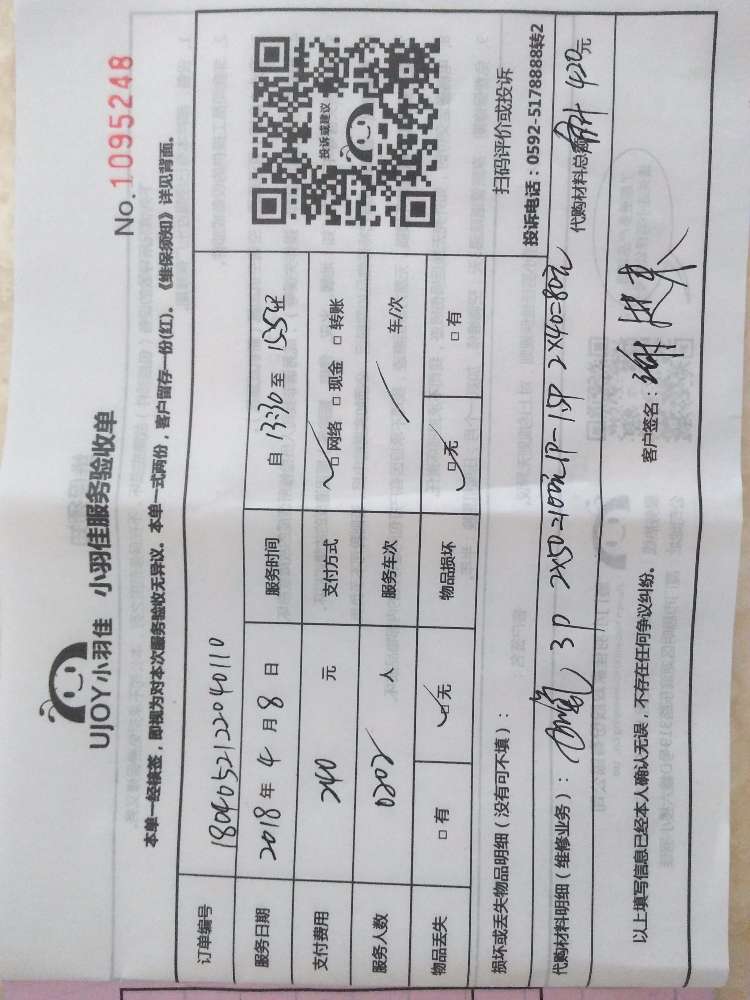 UJOY小羽佳 小羽佳服务验收单
No. 1095248
本单一经核签，即视为对本次服务验收无异议。本单一式两份，客户留存一份(红)。《维保须知》详见背面。
订单编号 1804052122040110
服务日期 2018 年 4 月 8 日 服务时间 自 13:30 至
支付费用 240 元 支付方式 □ 网络 □ 现金 □ 转账
服务人数 0202 人 服务车次 车/次
物品丢失 □ 有 □ 无 物品损坏 □ 无 □ 有
投诉或建议
扫码评价或投诉
投诉电话：0592-5178888转2
损坏或丢失物品明细（没有可不填）：
代购材料明细（维修业务）： 3P 2X50=100元 1P-1.5P 2X40=80元 代购材料总额 420元
以上填写信息已经本人确认无误，不存在任何争议纠纷。 客户签名：